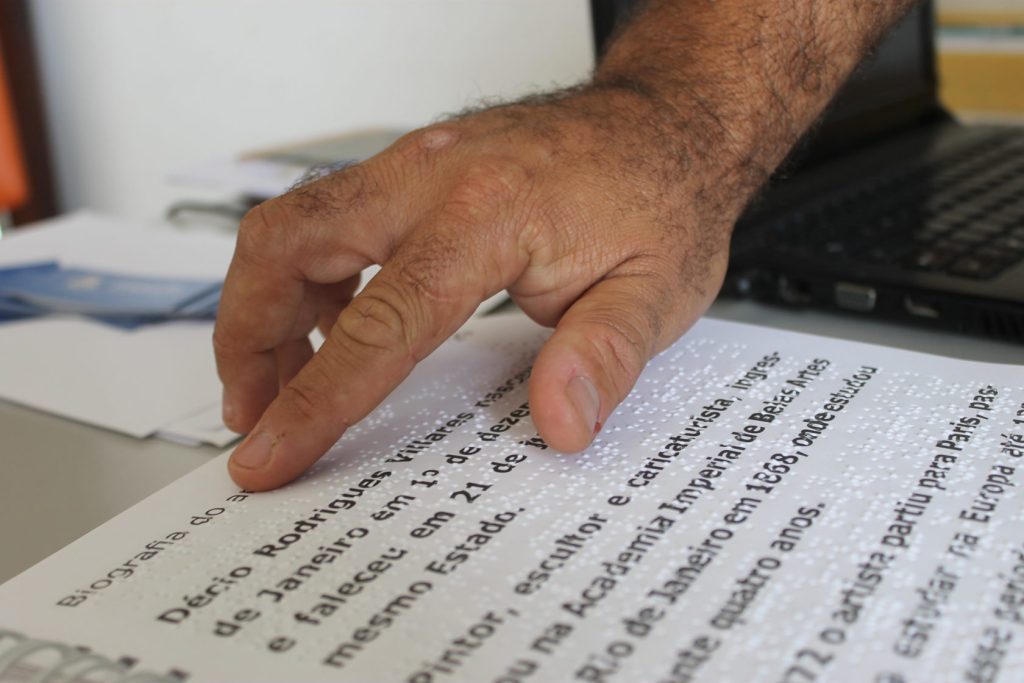 Biografia do
Décio Rodrigues Villares
de Janeiro em 1º de
e faleceu em 21 de
mesmo Estado.
Pintor, escultor e caricaturista, ingres-
ou na Academia Imperial de Belas Artes
Rio de Janeiro em 1868, onde estudou
nte quatro anos.
o artista partiu para Paris, pas-
estudar na Europa até